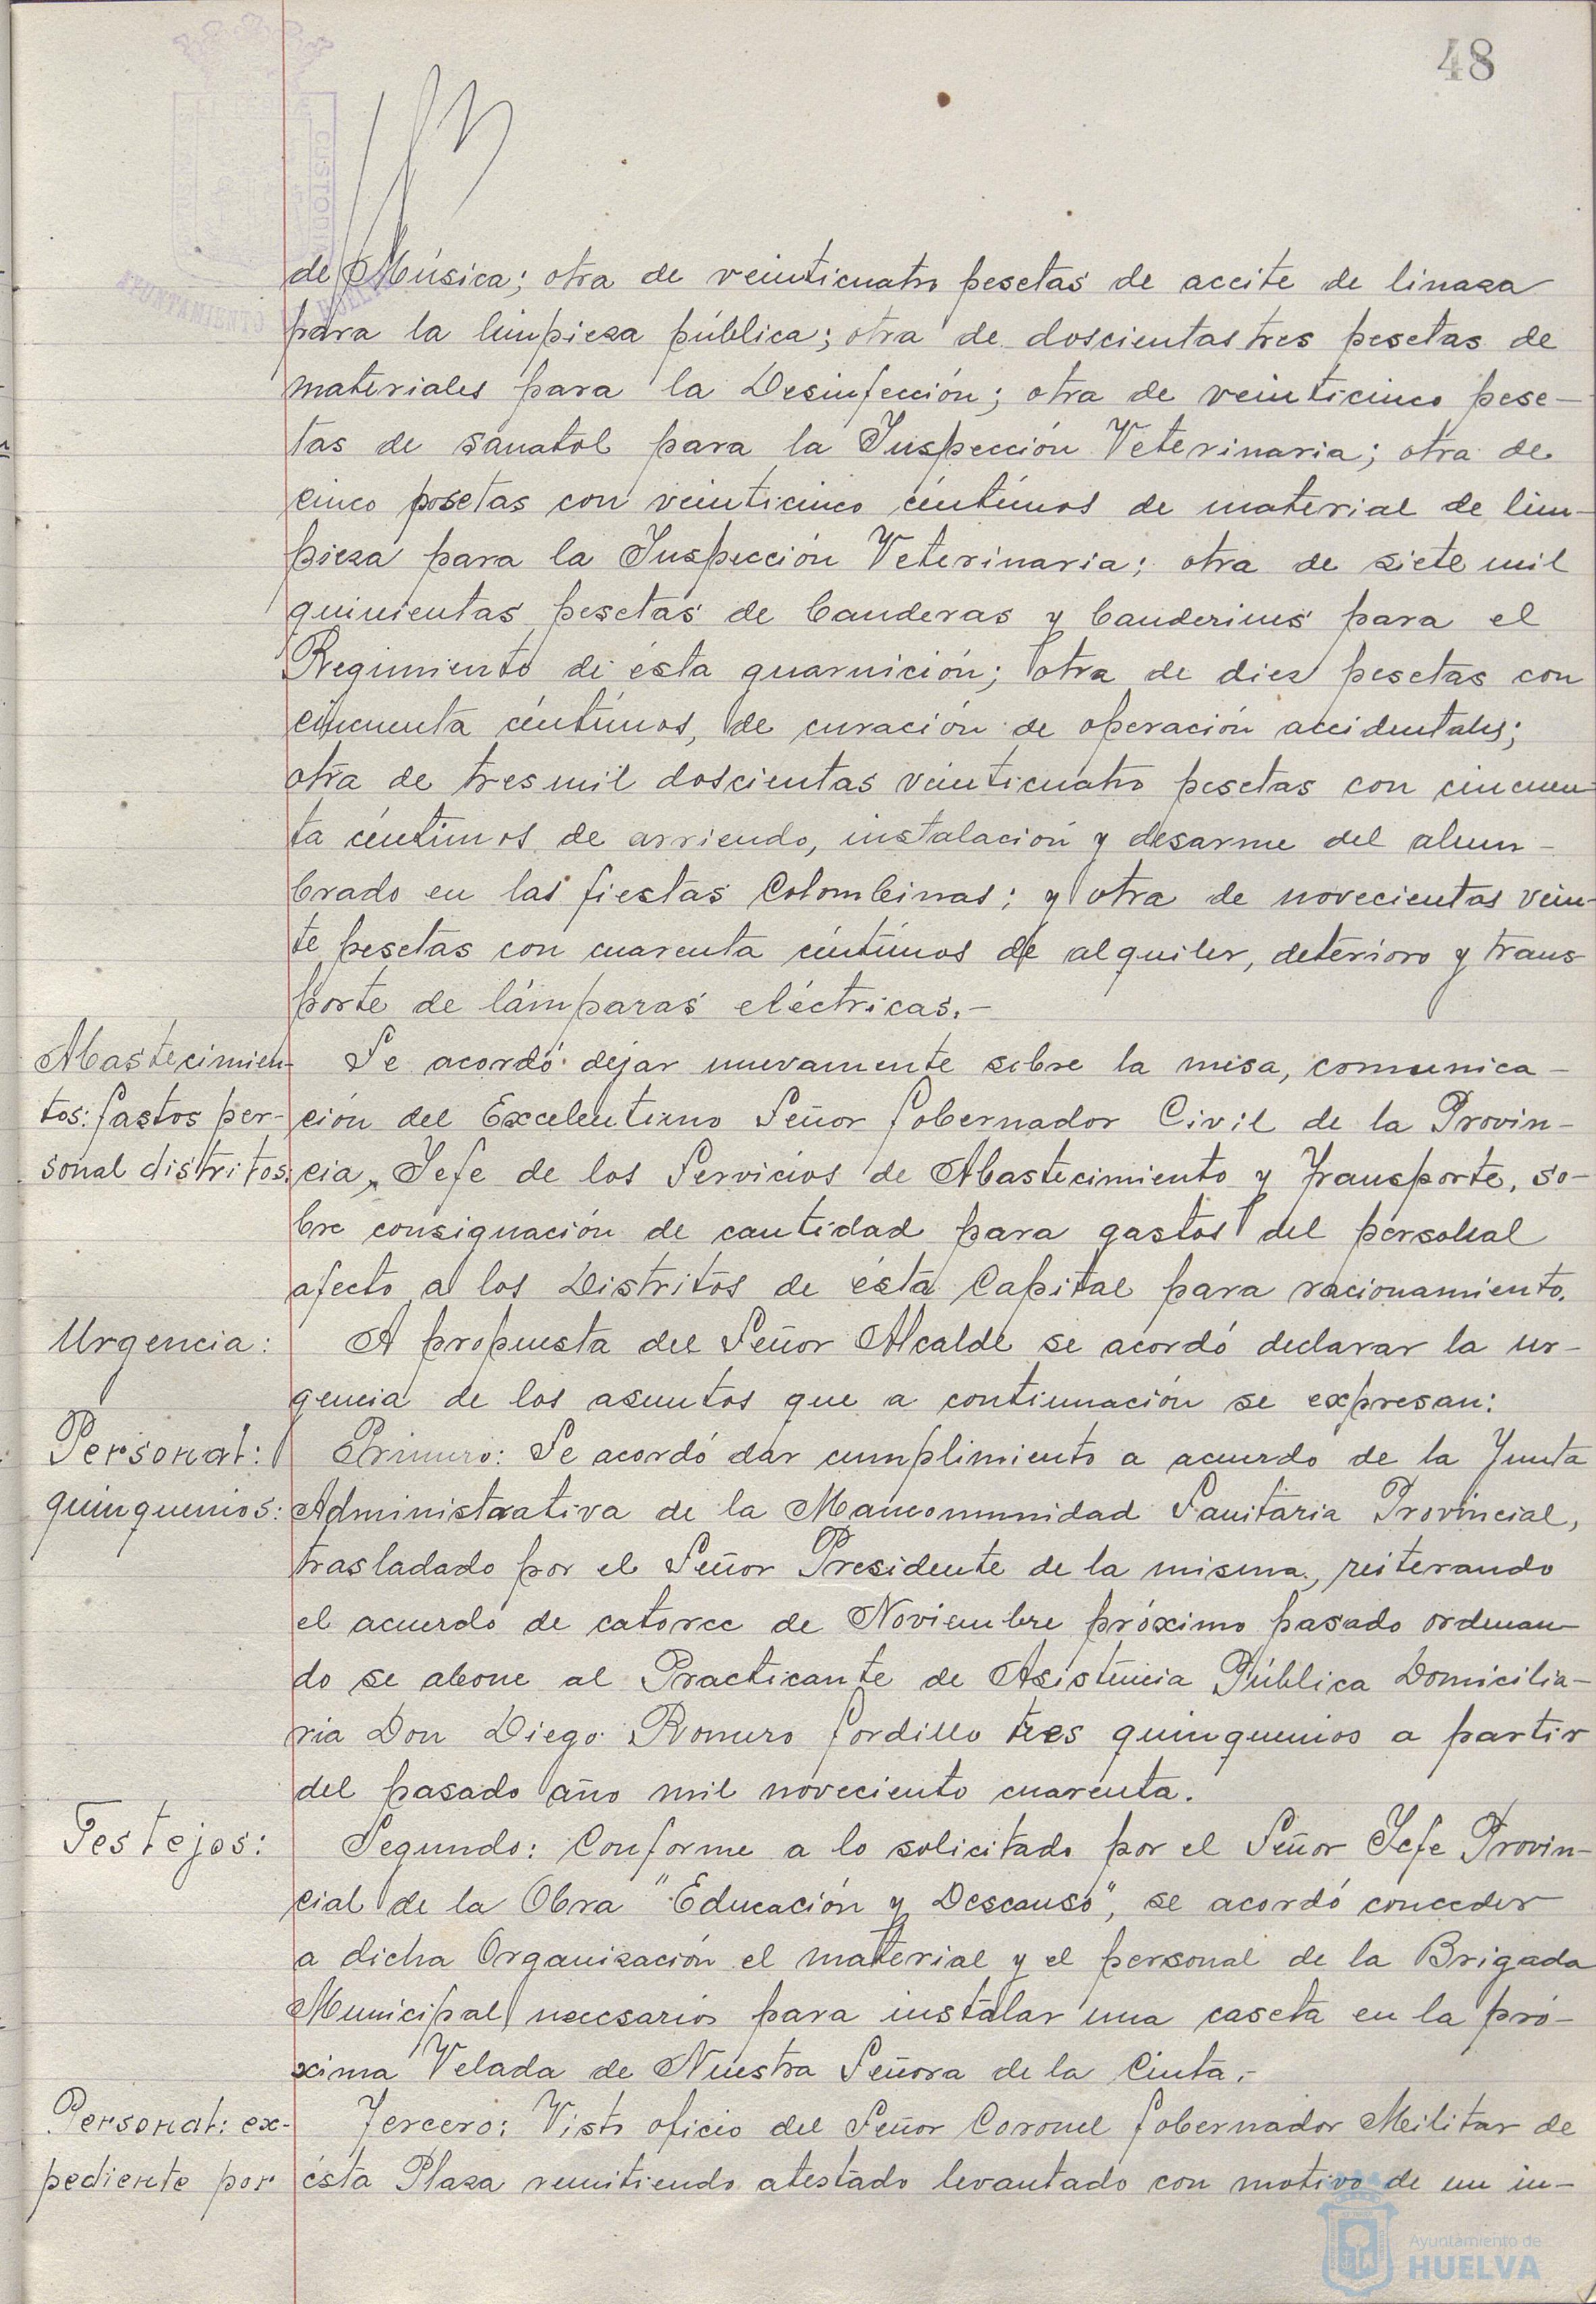 48
de Música; otra de veinticuatro pesetas de aceite de linaza
para la limpieza pública; otra de doscientas tres pesetas de
materiales para la Desinfección; otra de veinticinco pese-
tas de sanatol para la Inspección Veterinaria; otra de
cinco pesetas con veinticinco céntimos de material de lim-
pieza para la Inspección Veterinaria; otra de siete mil
quinientas pesetas de banderas y banderines para el
Regimiento de ésta guarnición; otra de diez pesetas con
cincuenta céntimos, de curación de operación accidentales;
otra de tres mil doscientas veinticuatro pesetas con cincuen-
ta céntimos de arriendo, instalación y desarme del alum-
brado en las fiestas Colombinas; y otra de novecientas vein-
te pesetas con cuarenta céntimos de alquiler, deterioro y trans-
porte de lámparas eléctricas.-
Abastecimien-
tos: Gastos per-
sonal distritos:
Se acordó dejar nuevamente sobre la mesa, comunica-
ción del Excelentismo Señor Gobernador Civil de la Provin-
cia, Jefe de los Servicios de Abastecimiento y Transporte, so-
bre consignación de cantidad para gastos del personal
afecto a los Distritos de ésta Capital para racionamiento.
Urgencia:
A propuesta del Señor Alcalde se acordó declarar la ur-
gencia de los asuntos que a continuación se expresan:
Personal:
quinquenios:
Primero: Se acordó dar cumplimiento a acuerdo de la Junta
Administrativa de la Mancomunidad Sanitaria Provincial,
trasladado por el Señor Presidente de la misma, reiterando
el acuerdo de catorce de Noviembre próximo pasado ordenan-
do se abone al Practicante de Asistencia Pública Domicilia-
ria Don Diego Romero Gordillo tres quinquenios a partir
del pasado año mil noveciento cuarenta.
Festejos:
Segundo: Conforme a lo solicitado por el Señor Jefe Provin-
cial de la Obra "Educación y Descanso", se acordó conceder
a dicha Organización el material y el personal de la Brigada
Municipal necesarios para instalar una caseta en la pró-
xima Velada de Nuestra Señora de la Cinta.-
Personal: ex-
pediente por
Tercero: Visto oficio del Señor Coronel Gobernador Militar de
ésta Plaza remitiendo atestado levantado con motivo de un in-
Ayuntamiento de
HUELVA